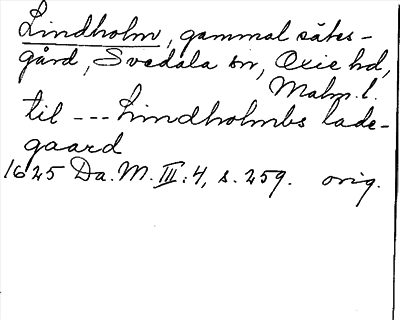 Lindholm, gammal sätes-
gård, Svedala sn, Oxie hd,
Malm. l.
til --- Lindholmbs lade-
gaard
1625 Da. M. III: 4, s. 259. orig.